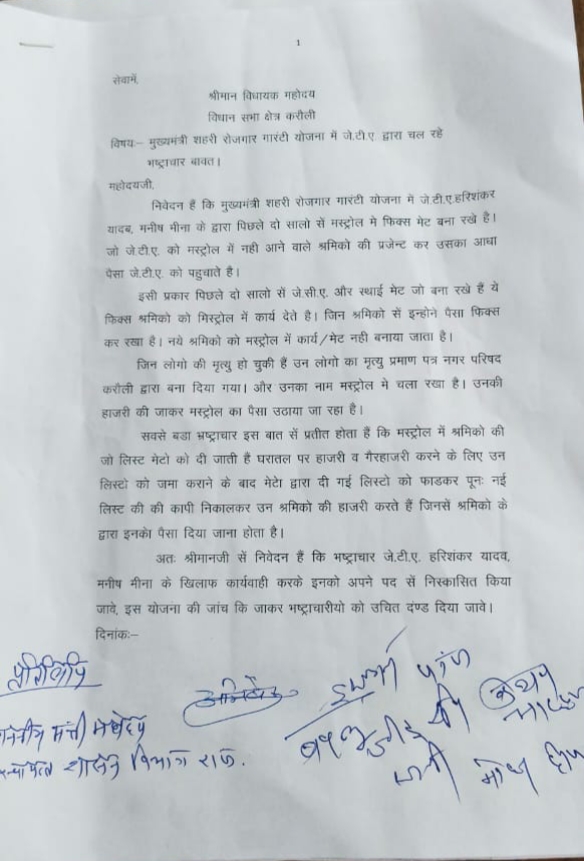 1
सेवामें,
श्रीमान विधायक महोदय
विधान सभा क्षेत्र करौली
विषयः– मुख्यमंत्री शहरी रोजगार गारंटी योजना में जे.टी.ए. द्वारा चल रहे
भष्ट्राचार बावत।
महोदयजी,
निवेदन हैं कि मुख्यमंत्री शहरी रोजगार गारंटी योजना में जे.टी.ए.हरिशंकर
यादब, मनीष मीना के द्वारा पिछले दो सालो सें मस्ट्रोल मे फिक्स मेट बना रखे है।
जो जे.टी.ए. को मस्ट्रोल में नही आने वाले श्रमिको की प्रजेन्ट कर उसका आधा
पैसा जे.टी.ए. को पहुचाते है।
इसी प्रकार पिछले दो सालो सें जे.सी.ए. और स्थाई मेट जो बना रखे हैं ये
फिक्स श्रमिको को मिस्ट्रोल में कार्य देते है। जिन श्रमिको सें इन्होने पैसा फिक्स
कर रखा है। नये श्रमिको को मस्ट्रोल में कार्य/मेट नही बनाया जाता है।
जिन लोगो की मृत्यु हो चुकी हैं उन लोगो का मृत्यु प्रमाण पत्र नगर परिषद
करौली द्वारा बना दिया गया। और उनका नाम मस्ट्रोल मे चला रखा है। उनकी
हाजरी की जाकर मस्ट्रोल का पैसा उठाया जा रहा है।
सवसे बडा भ्रष्ट्राचार इस बात सें प्रतीत होता हैं कि मस्ट्रोल में श्रमिको की
जो लिस्ट मेटो को दी जाती हैं घरातल पर हाजरी व गैरहाजरी करने के लिए उन
लिस्टो को जमा कराने के बाद मेटो द्वारा दी गई लिस्टो को फाडकर पूनः नई
लिस्ट की की कापी निकालकर उन श्रमिको की हाजरी करते हैं जिनसें श्रमिको के
द्वारा इनको पैसा दिया जाना होता है।
अतः श्रीमानजी सें निवेदन हैं कि भष्ट्राचार जे.टी.ए. हरिशंकर यादव,
मनीष मीना के खिलाफ कार्यवाही करके इनको अपने पद सें निस्कासित किया
जावे, इस योजना की जांच कि जाकर भष्ट्राचारीयो को उचित दंण्ड दिया जावे।
दिनांकः–
प्रतिलिपि
मंत्री महोदय
शासन विभाग राज.